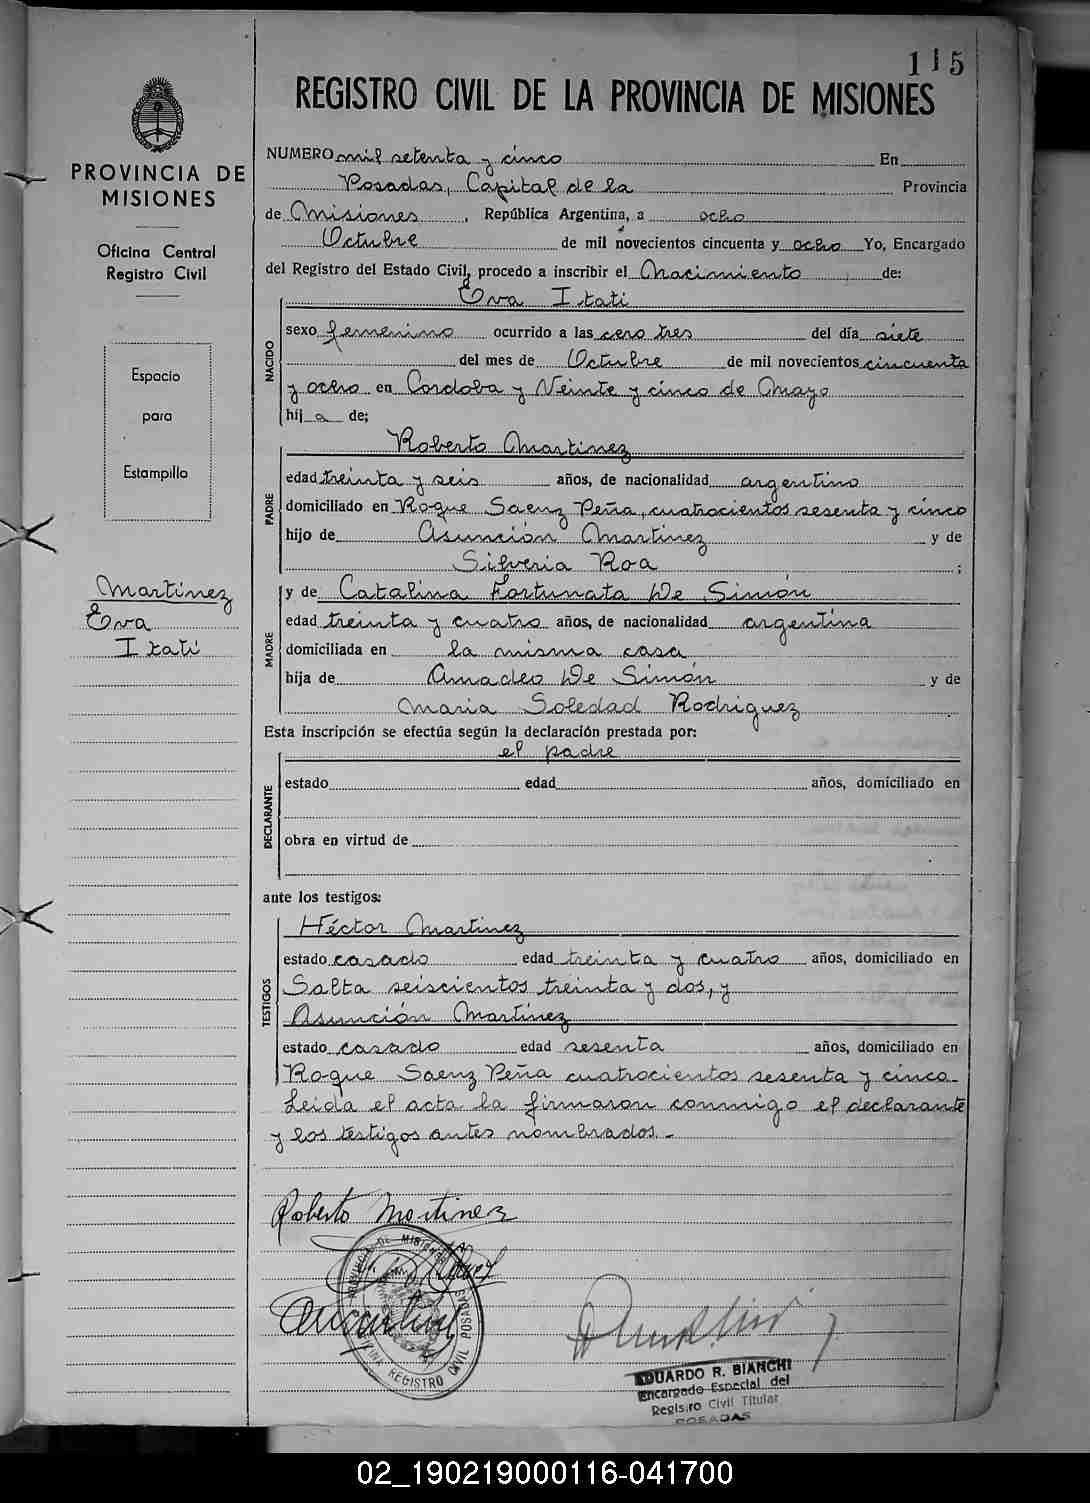 115
REGISTRO CIVIL DE LA PROVINCIA DE MISIONES
PROVINCIA DE
MISIONES
Oficina Central
Registro Civil
Espacio
para
Estampilla
Martinez
Eva
Itati
NUMERO mil setenta y cinco En
Posadas, Capital de la Provincia
de Misiones, República Argentina, a ocho
Octubre de mil novecientos cincuenta y ocho Yo, Encargado
del Registro del Estado Civil, procedo a inscribir el Nacimiento de:
Eva Itati
NACIDO
sexo femenino ocurrido a las cero tres del día siete
del mes de Octubre de mil novecientos cincuenta
y ocho en Cordoba y Veinte y cinco de Mayo
hij a de;
Roberto Martinez
PADRE
edad treinta y seis años, de nacionalidad argentino
domiciliado en Roque Saenz Peña, cuatrocientos sesenta y cinco
hijo de Asunción Martinez y de
Silveria Roa ;
y de Catalina Fortunata De Simón
MADRE
edad treinta y cuatro años, de nacionalidad argentina
domiciliada en la misma casa
hija de Amadeo De Simón y de
Maria Soledad Rodriguez
Esta inscripción se efectúa según la declaración prestada por:
el padre
DECLARANTE
estado edad años, domiciliado en
obra en virtud de
ante los testigos:
Héctor Martinez
TESTIGOS
estado casado edad treinta y cuatro años, domiciliado en
Salta seiscientos treinta y dos, y
Asunción Martinez
estado casado edad sesenta años, domiciliado en
Roque Saenz Peña cuatrocientos sesenta y cinco.
Leida el acta la firmaron conmigo el declarante
y los testigos antes nombrados.-
Roberto Martinez
PROVINCIA DE MISIONES
OFICINA REGISTRO CIVIL POSADAS
EDUARDO R. BIANCHI
Encargado Especial del
Registro Civil Titular
POSADAS
02_190219000116-041700